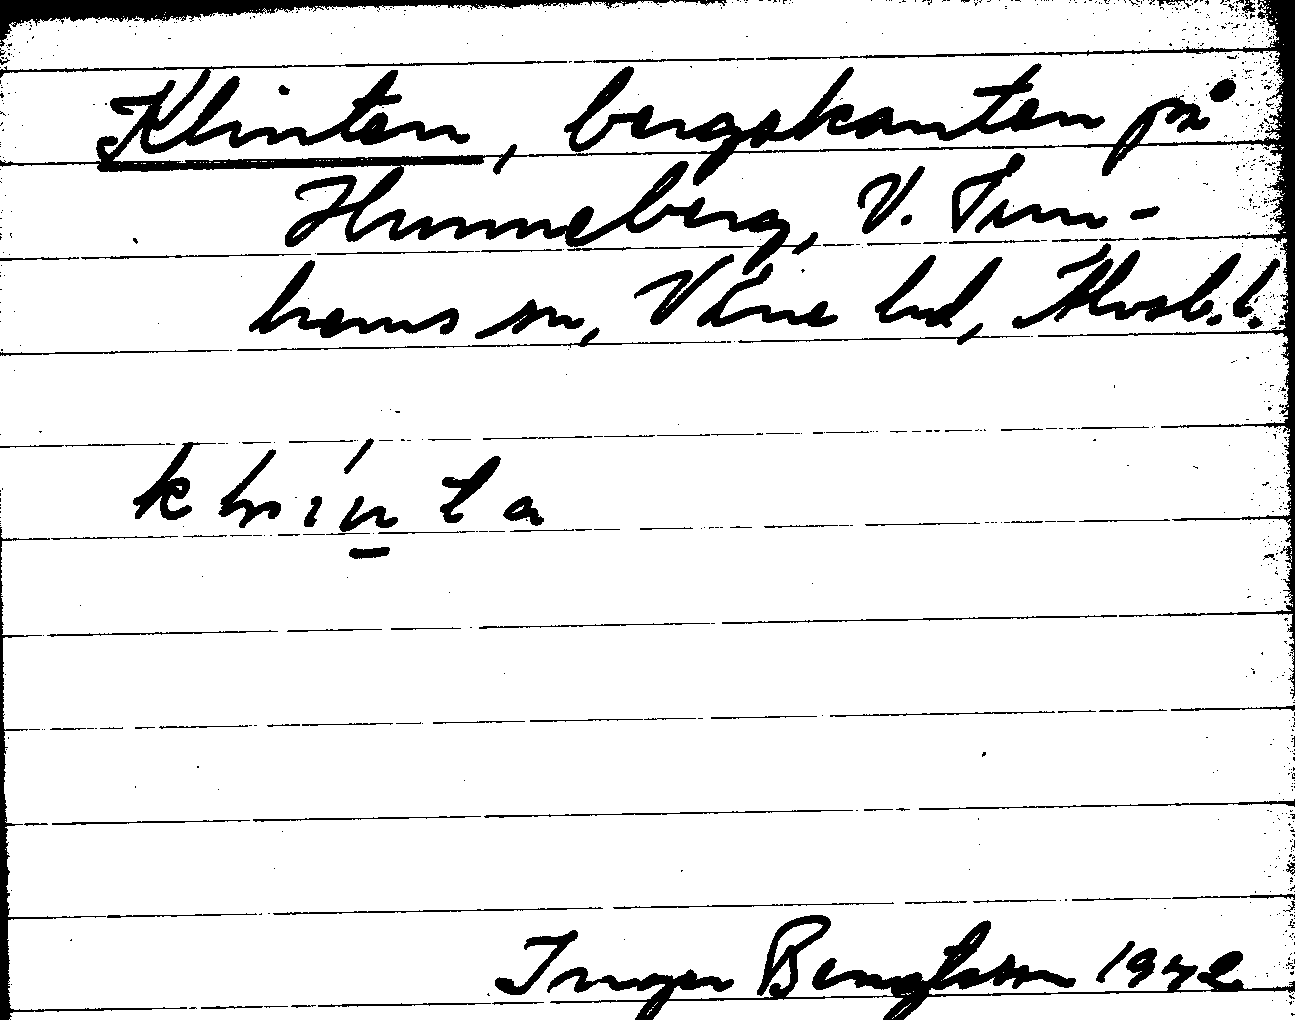 Klinten, bergskanten på
Hunneberg, V. Tun-
hems sn, Väne hd, Älvsb.l.
Inger Bengtsson 1942